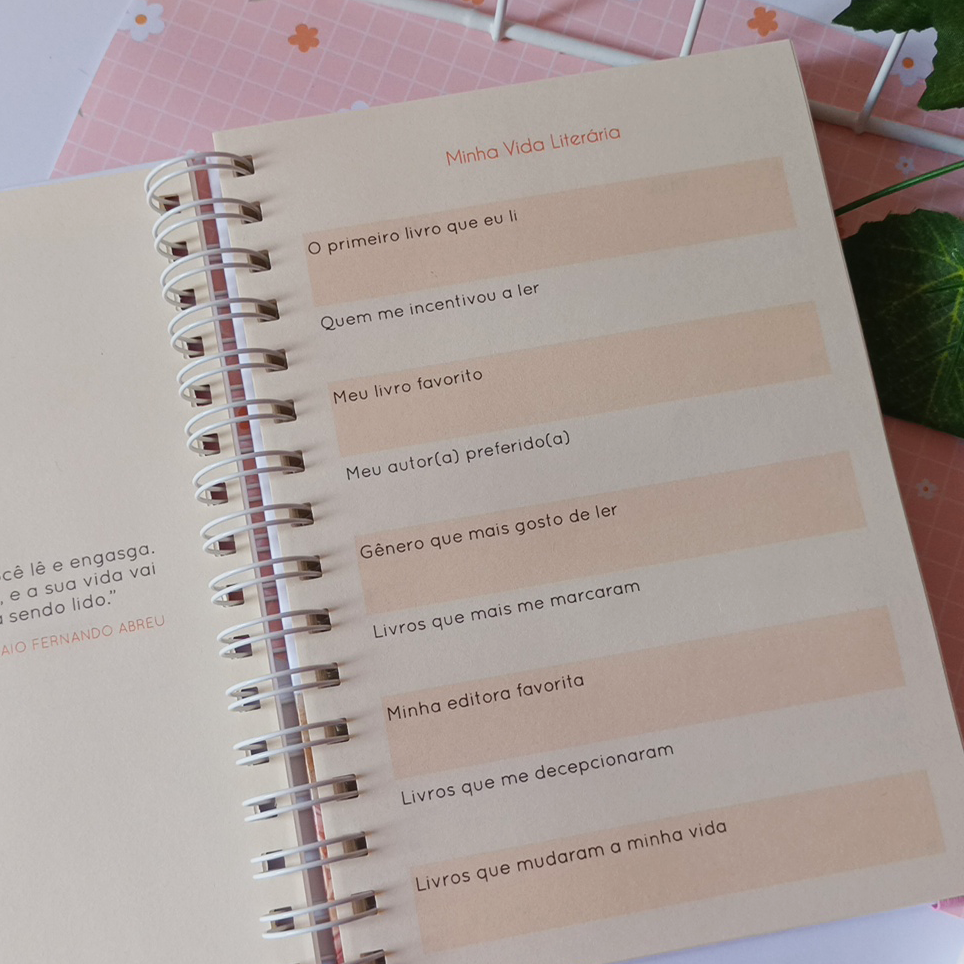 lê e engasga.
, e a sua vida vai
sendo lido."
FERNANDO ABREU
Minha Vida Literária
O primeiro livro que eu li
Quem me incentivou a ler
Meu livro favorito
Meu autor(a) preferido(a)
Gênero que mais gosto de ler
Livros que mais me marcaram
Minha editora favorita
Livros que me decepcionaram
Livros que mudaram a minha vida